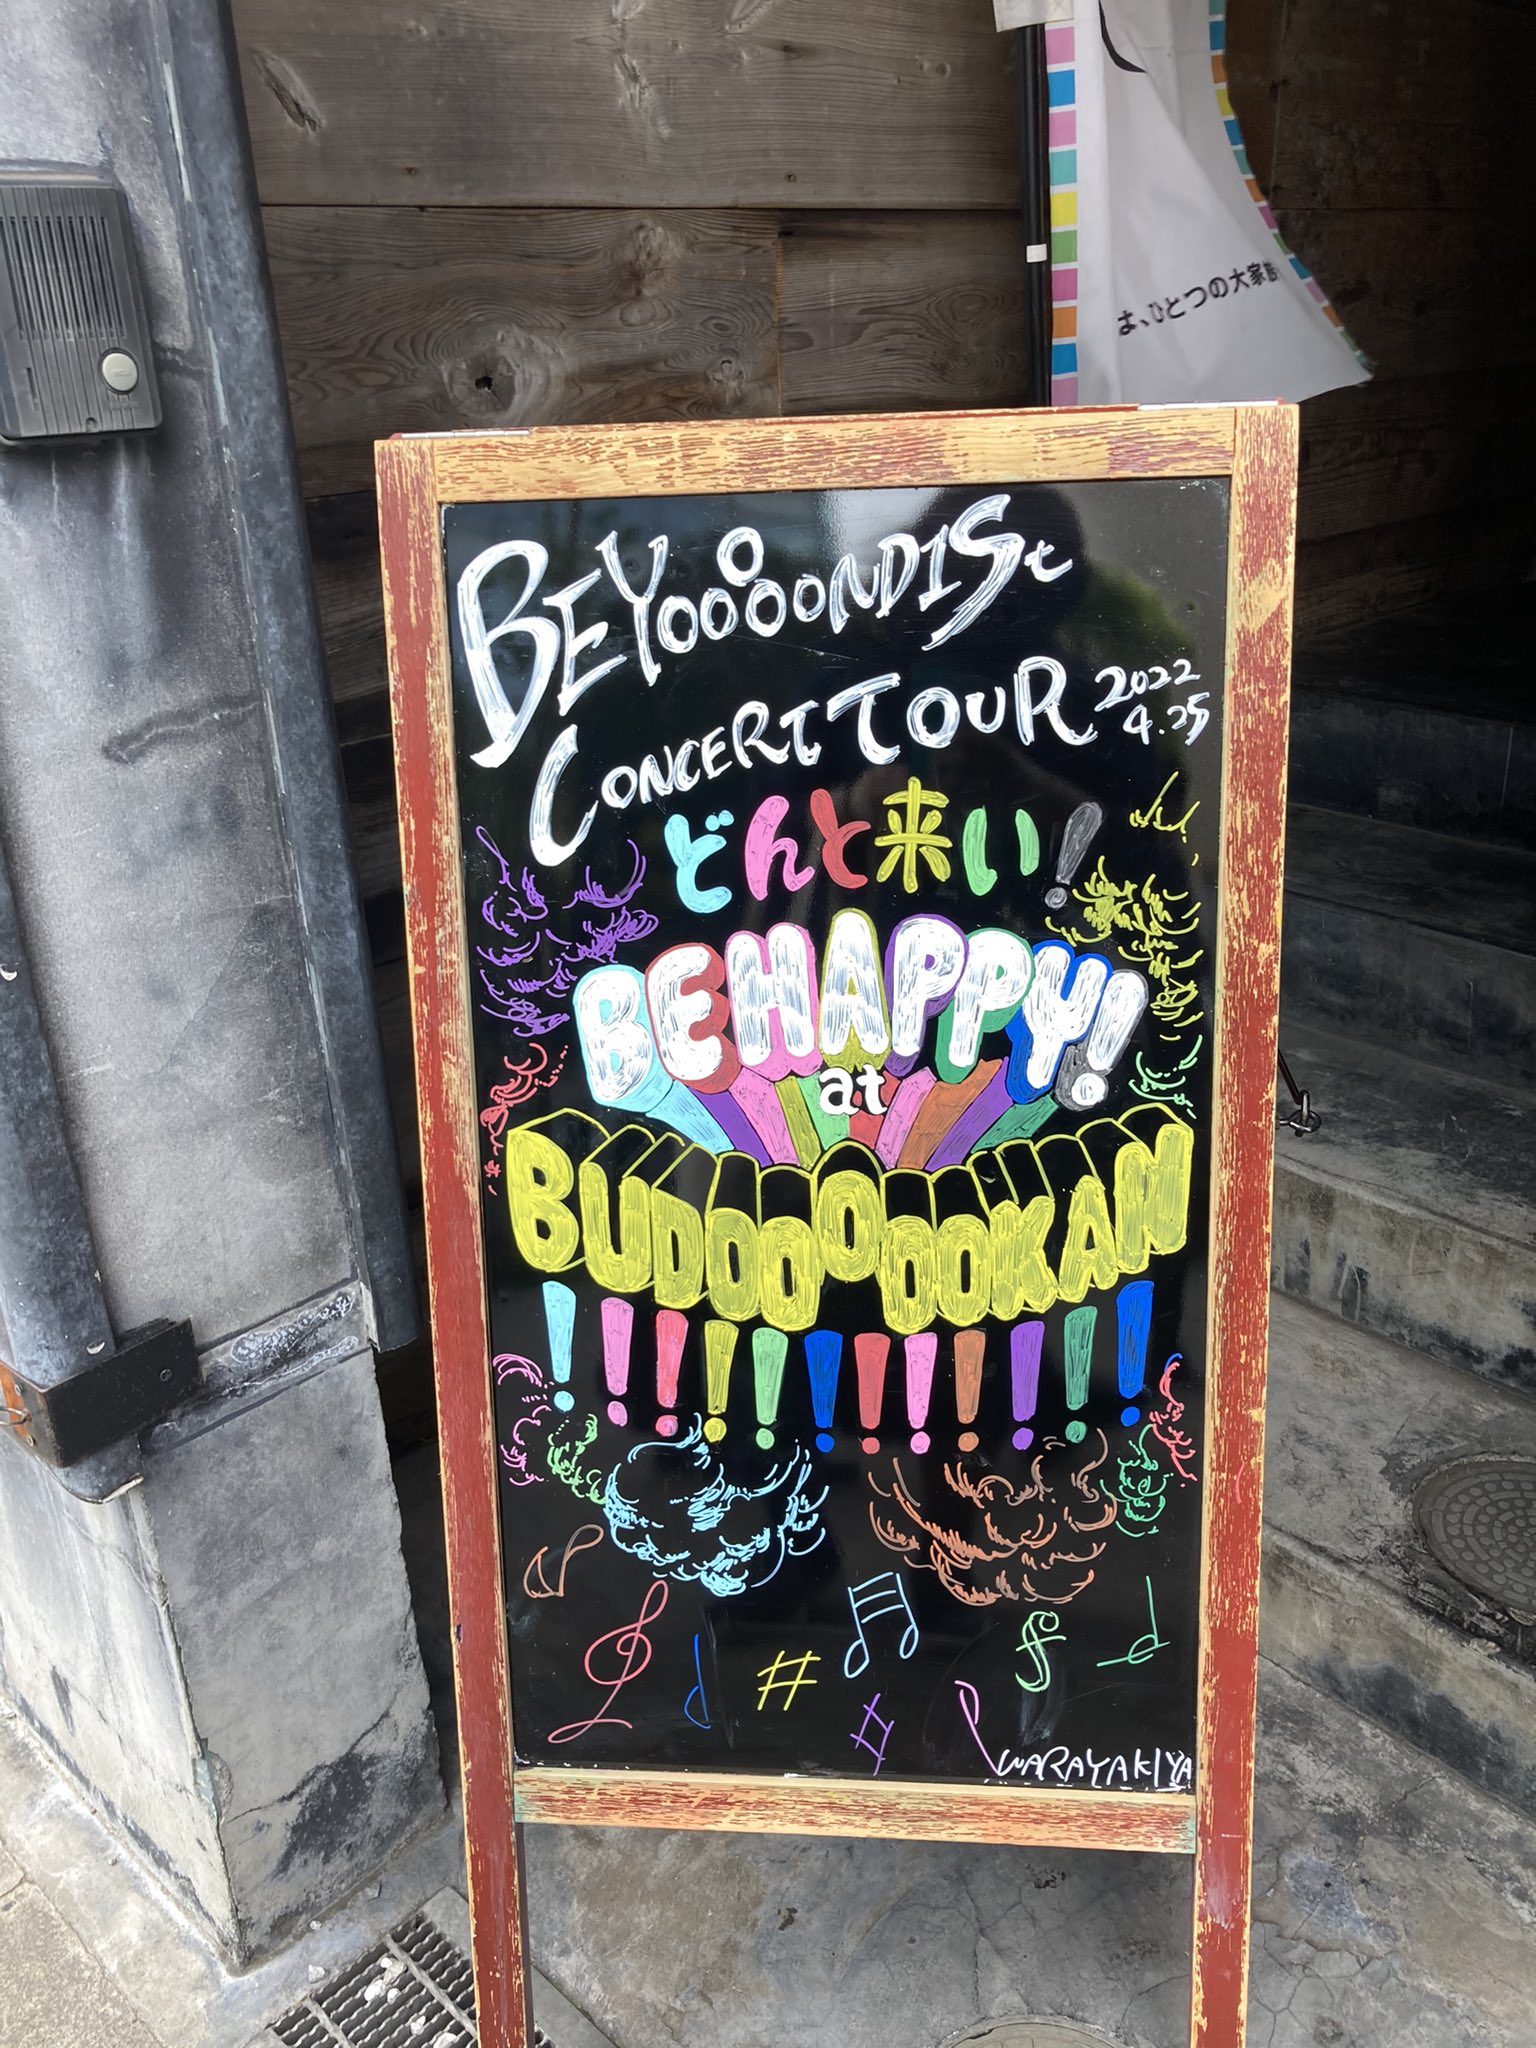 は、ひとつの大家族
BEYOOOOONDISt
CONCERT TOUR 2022
4.25
どんと来い!
BE HAPPY!
at
BUDOOOOOKAN
!!!!!!!!!!!!
WARAYAKIYA